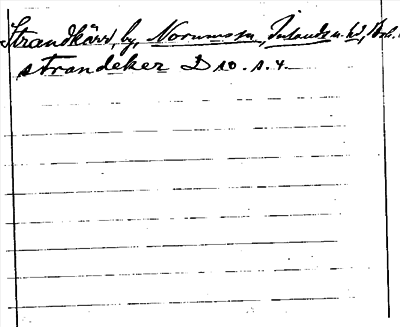 Strandkärr, by, Norums sn, Inlands n. hd, Boh.
strandeker D 10. s. 4.